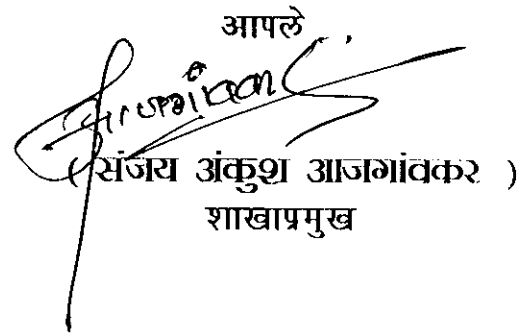 आपले
( संजय अंकुश आजगांवकर )
शाखाप्रमुख